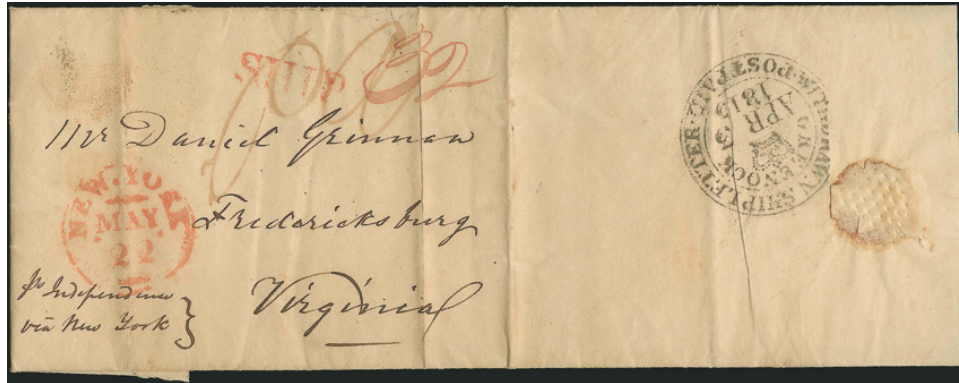 SHIP 32
Mr Daniel Grinnan
Fredericksburg
Virginia
NEW-YORK
MAY
22
pr Independence
via New York
POST PAID WITHDRAWN SHIP LETTER
GREENOCK
APR
181